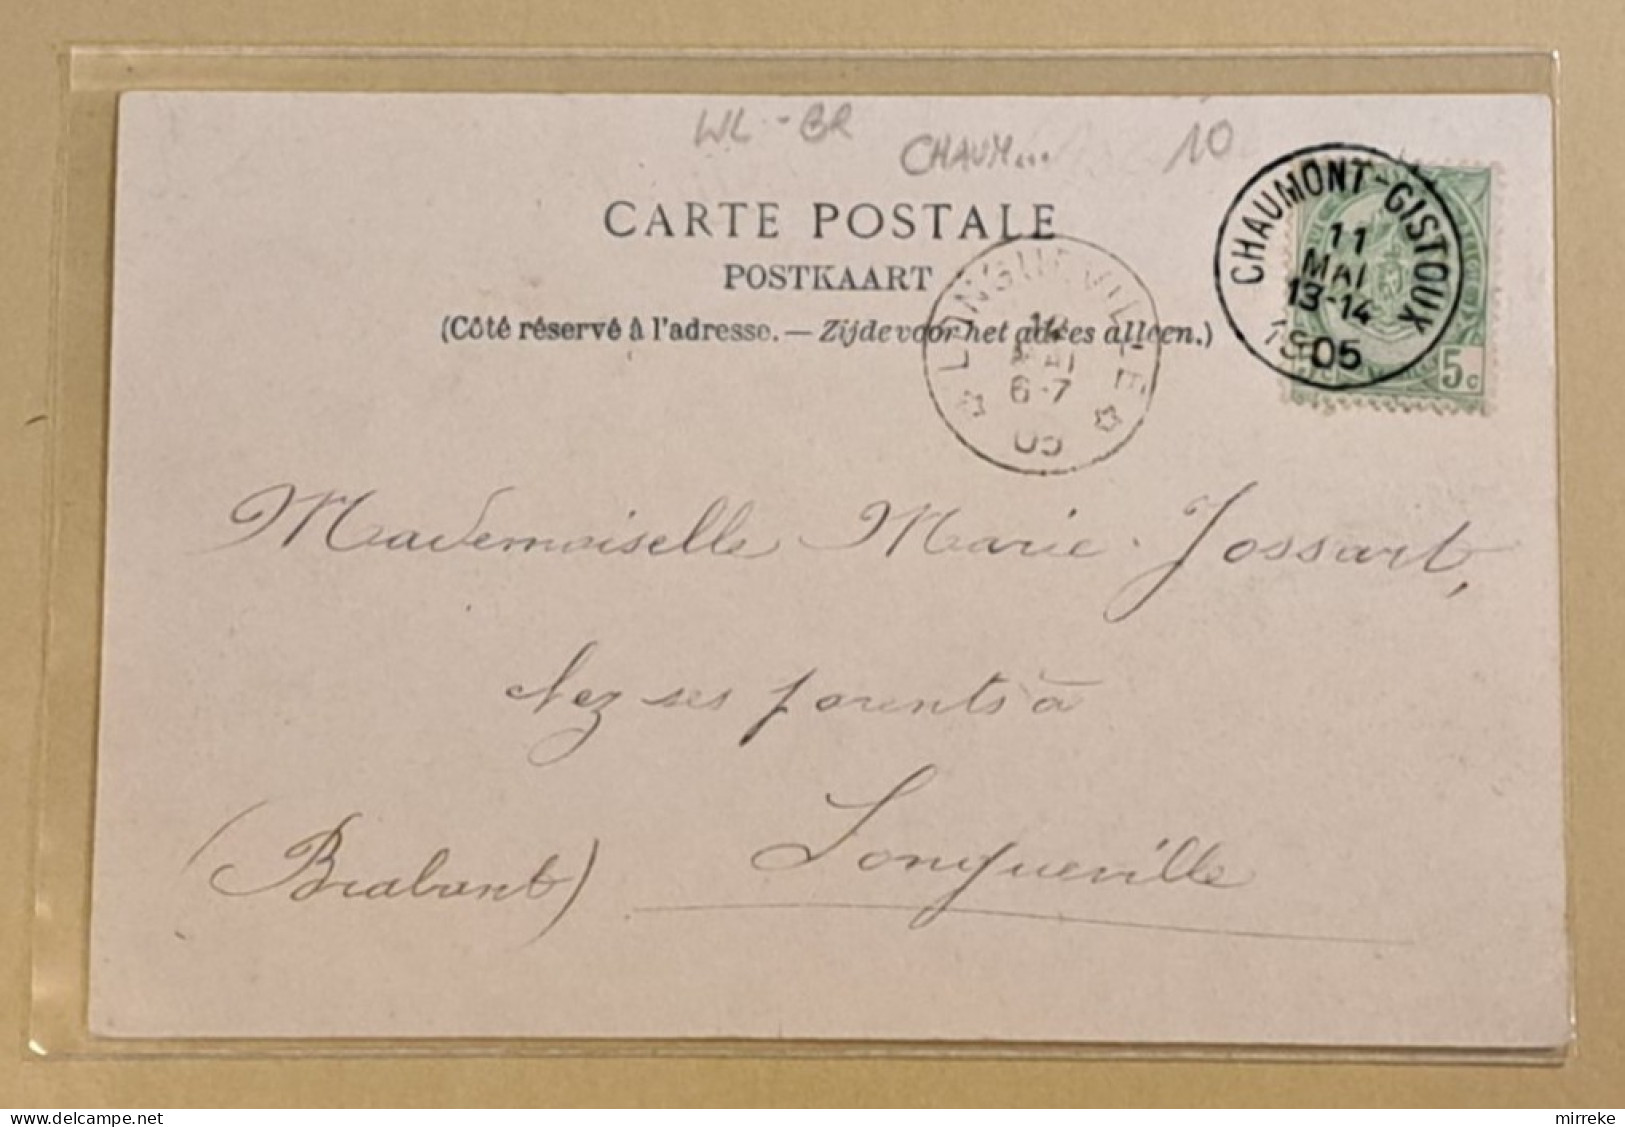 WL - BR
CHAUM...
10
CARTE POSTALE
POSTKAART
(Côté réservé à l'adresse. — Zijde voor het adres alleen.)
CHAUMONT-GISTOUX
11
MAI
13-14
1905
5c
LONGUEVILLE
MAI
6-7
05
Mademoiselle Marie Jossart,
chez ses parents à
Longueville
(Brabant)
mirreke